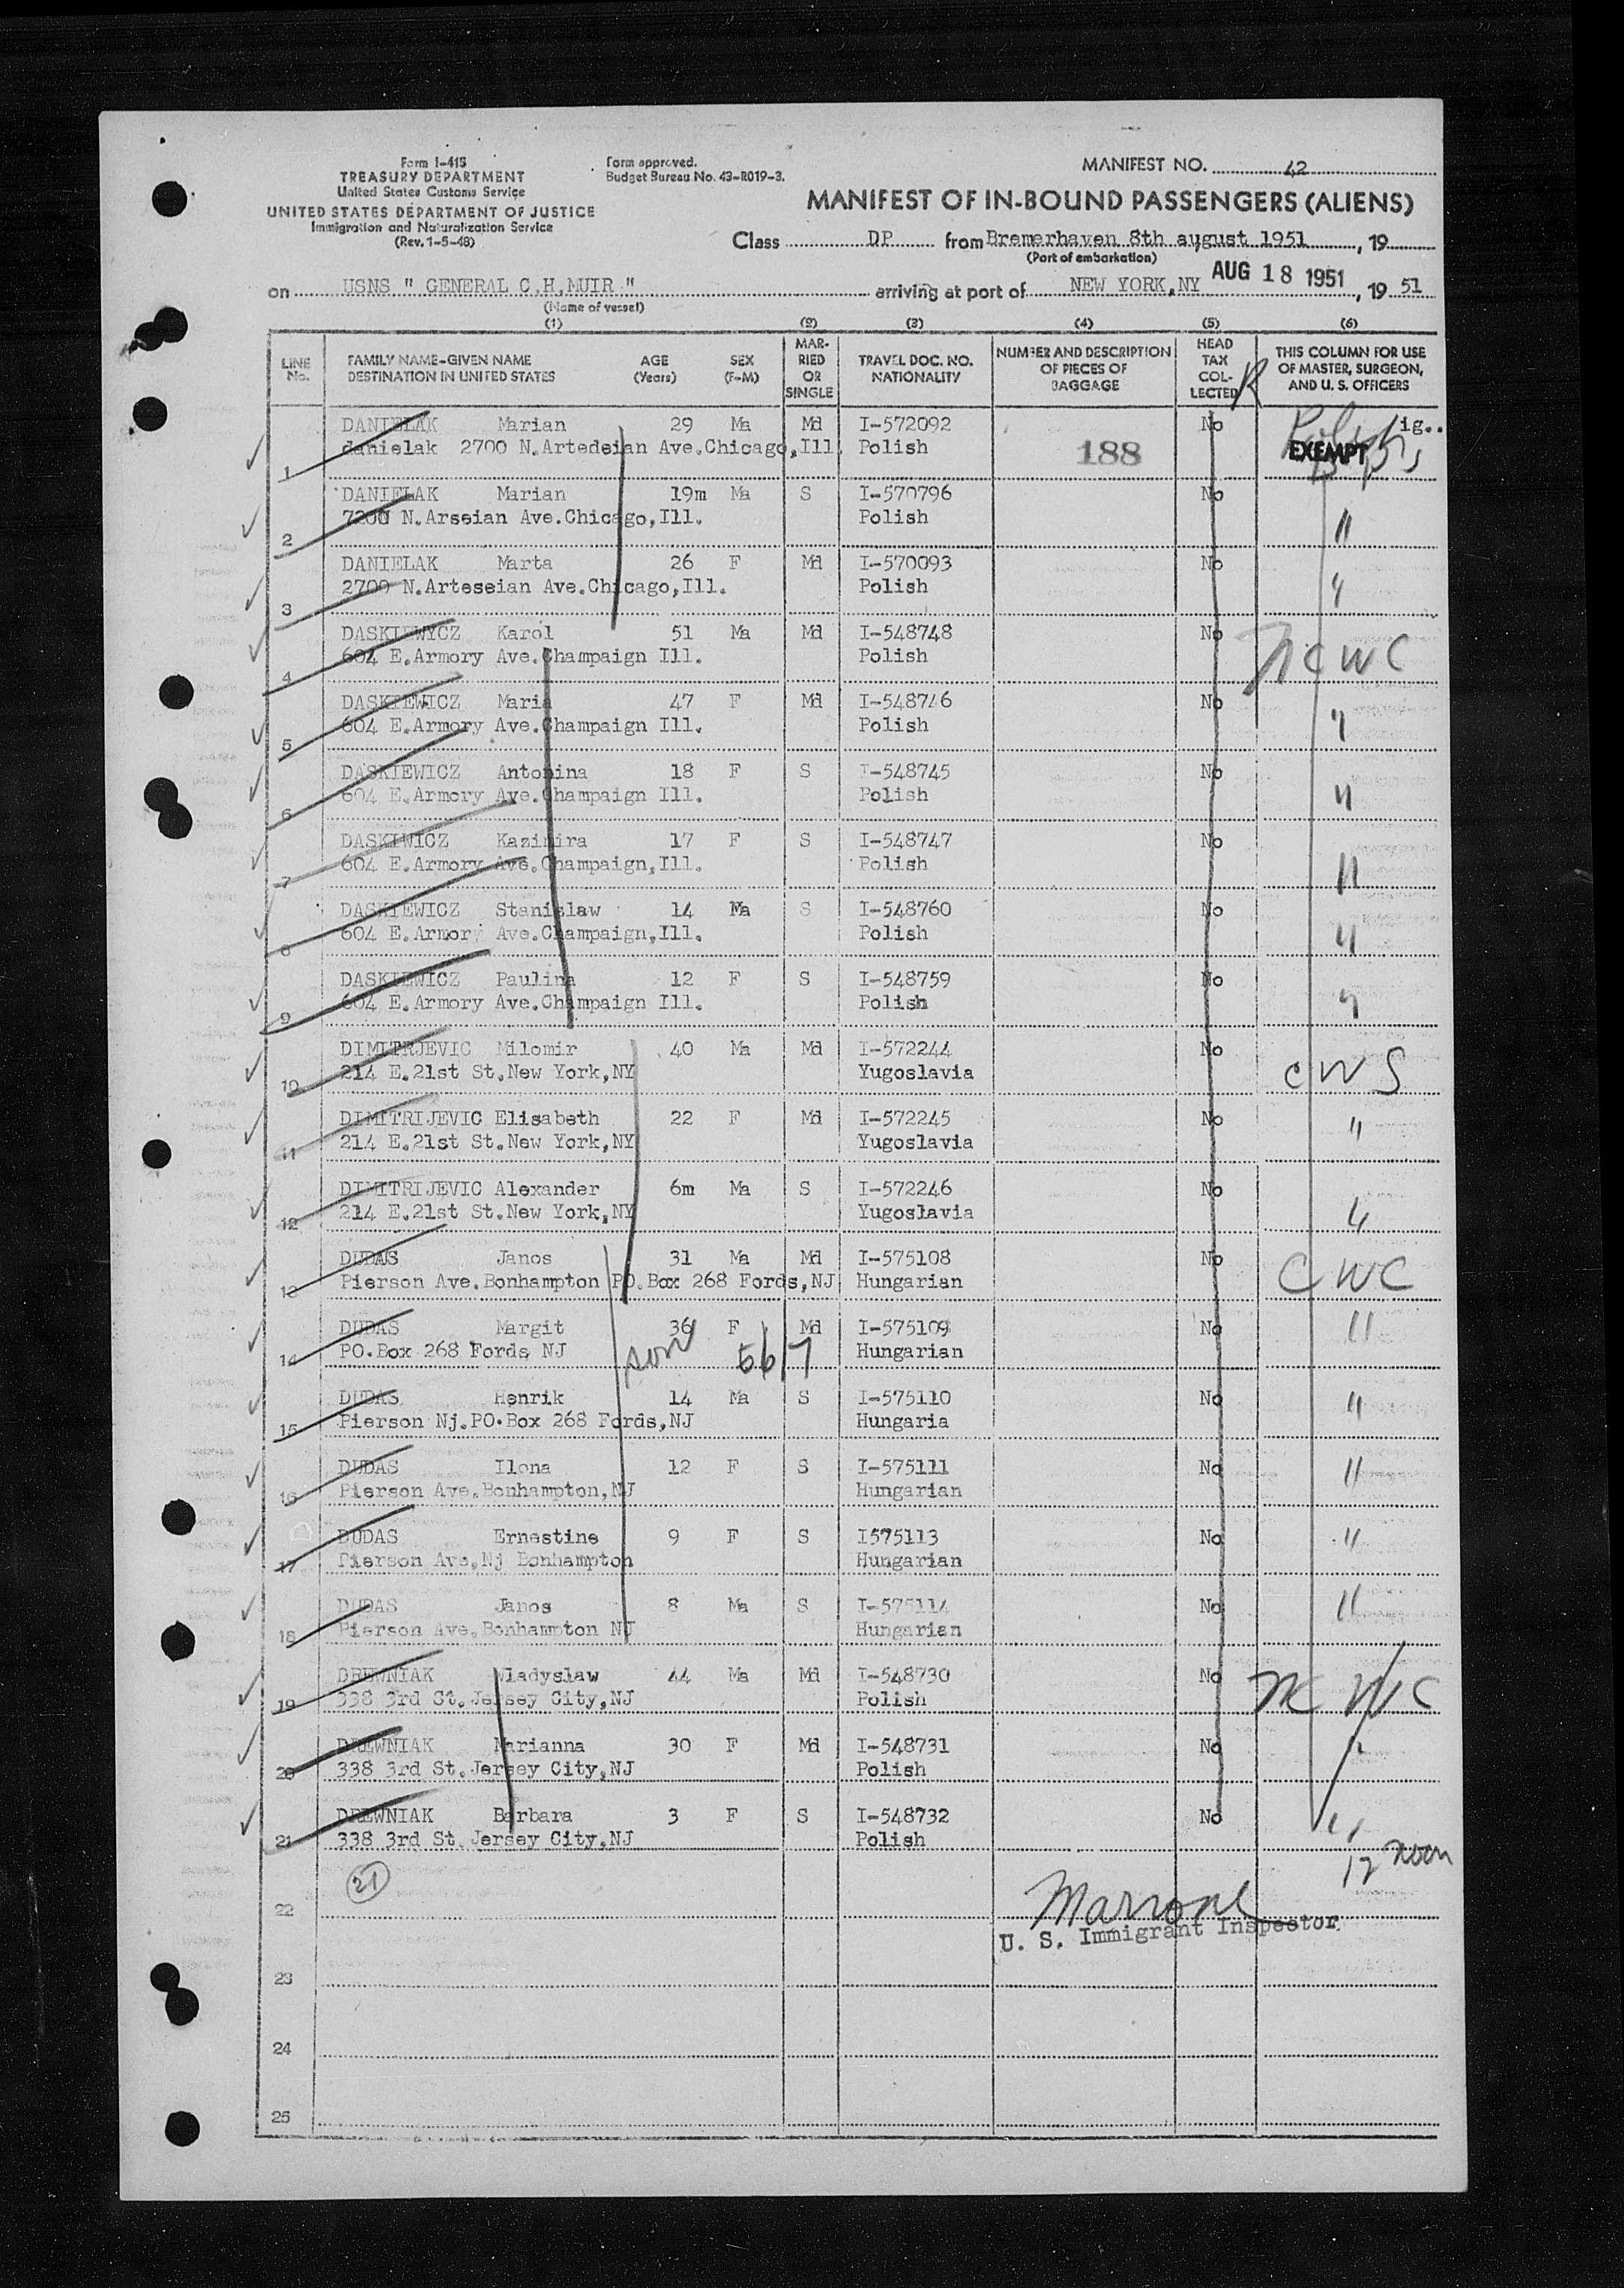 Form I-415
TREASURY DEPARTMENT
United States Customs Service
UNITED STATES DEPARTMENT OF JUSTICE
Immigration and Naturalization Service
(Rev. 1-5-48)
Form approved.
Budget Bureau No. 43-R019-3.
MANIFEST NO. 42
MANIFEST OF IN-BOUND PASSENGERS (ALIENS)
Class DP from Bremerhaven 8th august 1951, 19
(Port of embarkation)
on USNS " GENERAL C.H.MUIR " arriving at port of NEW YORK,NY AUG 18 1951, 19 51
(Name of vessel)
(1) (2) (3) (4) (5) (6)
LINE No. FAMILY NAME-GIVEN NAME DESTINATION IN UNITED STATES AGE (Years) SEX (F-M) MARRIED OR SINGLE TRAVEL DOC. NO. NATIONALITY NUMBER AND DESCRIPTION OF PIECES OF BAGGAGE HEAD TAX COLLECTED THIS COLUMN FOR USE OF MASTER, SURGEON, AND U. S. OFFICERS
DANIELAK Marian 29 Ma Md I-572092 No ig..
1 danielak 2700 N.Artedeian Ave.Chicago,Ill. Polish 188 EXEMPT
DANIELAK Marian 19m Ma S I-570796 No
2 7200 N.Arseian Ave.Chicago,Ill. Polish "
DANIELAK Marta 26 F Md I-570093 No
3 2700 N.Arteseian Ave.Chicago,Ill. Polish "
DASKIEWYCZ Karol 51 Ma Md I-548748 No
4 604 E.Armory Ave.Champaign Ill. Polish NCWC
DASKIEWICZ Maria 47 F Md I-548746 No
5 604 E.Armory Ave.Champaign Ill. Polish "
DASKIEWICZ Antonina 18 F S I-548745 No
6 604 E.Armory Ave.Champaign Ill. Polish "
DASKIWICZ Kazimira 17 F S I-548747 No
7 604 E.Armory Ave.Champaign,Ill. Polish "
DASKIEWICZ Stanislaw 14 Ma S I-548760 No
8 604 E.Armory Ave.Champaign,Ill. Polish "
DASKIEWICZ Paulina 12 F S I-548759 No
9 604 E.Armory Ave.Champaign Ill. Polish "
DIMITRJEVIC Milomir 40 Ma Md I-572244 No
10 214 E.21st St.New York,NY Yugoslavia CWS
DIMITRIJEVIC Elisabeth 22 F Md I-572245 No
11 214 E.21st St.New York,NY Yugoslavia "
DIMITRIJEVIC Alexander 6m Ma S I-572246 No
12 214 E.21st St.New York,NY Yugoslavia "
DUDAS Janos 31 Ma Md I-575108 No
13 Pierson Ave.Bonhampton PO.Box 268 Fords,NJ Hungarian CWC
DUDAS Margit 36 F Md I-575109 No "
14 PO.Box 268 Fords NJ son 56/7 Hungarian
DUDAS Henrik 14 Ma S I-575110 No
15 Pierson Nj.PO.Box 268 Fords,NJ Hungaria "
DUDAS Ilona 12 F S I-575111 No
16 Pierson Ave.Bonhampton,NJ Hungarian "
DUDAS Ernestine 9 F S I575113 No
17 Pierson Ave,Nj Bonhampton Hungarian "
DUDAS Janos 8 Ma S I-575114 No
18 Pierson Ave.Bonhampton NJ Hungarian "
DREWNIAK Wladyslaw 44 Ma Md I-548730 No
19 338 3rd St.Jersey City,NJ Polish NCWC
DREWNIAK Marianna 30 F Md I-548731 No
20 338 3rd St.Jersey City,NJ Polish "
DREWNIAK Barbara 3 F S I-548732 No
21 338 3rd St.Jersey City,NJ Polish "
12 noon
21
22 Marrone
U. S. Immigrant Inspector
23
24
25